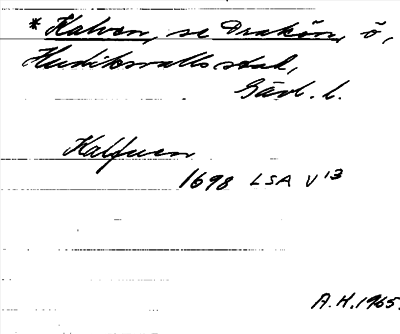 * Kalven, se Drakön, ö,
Hudiksvalls stad,
Gävl. l.
Kalfuen
1698 LSA V 13
A.H. 1965.